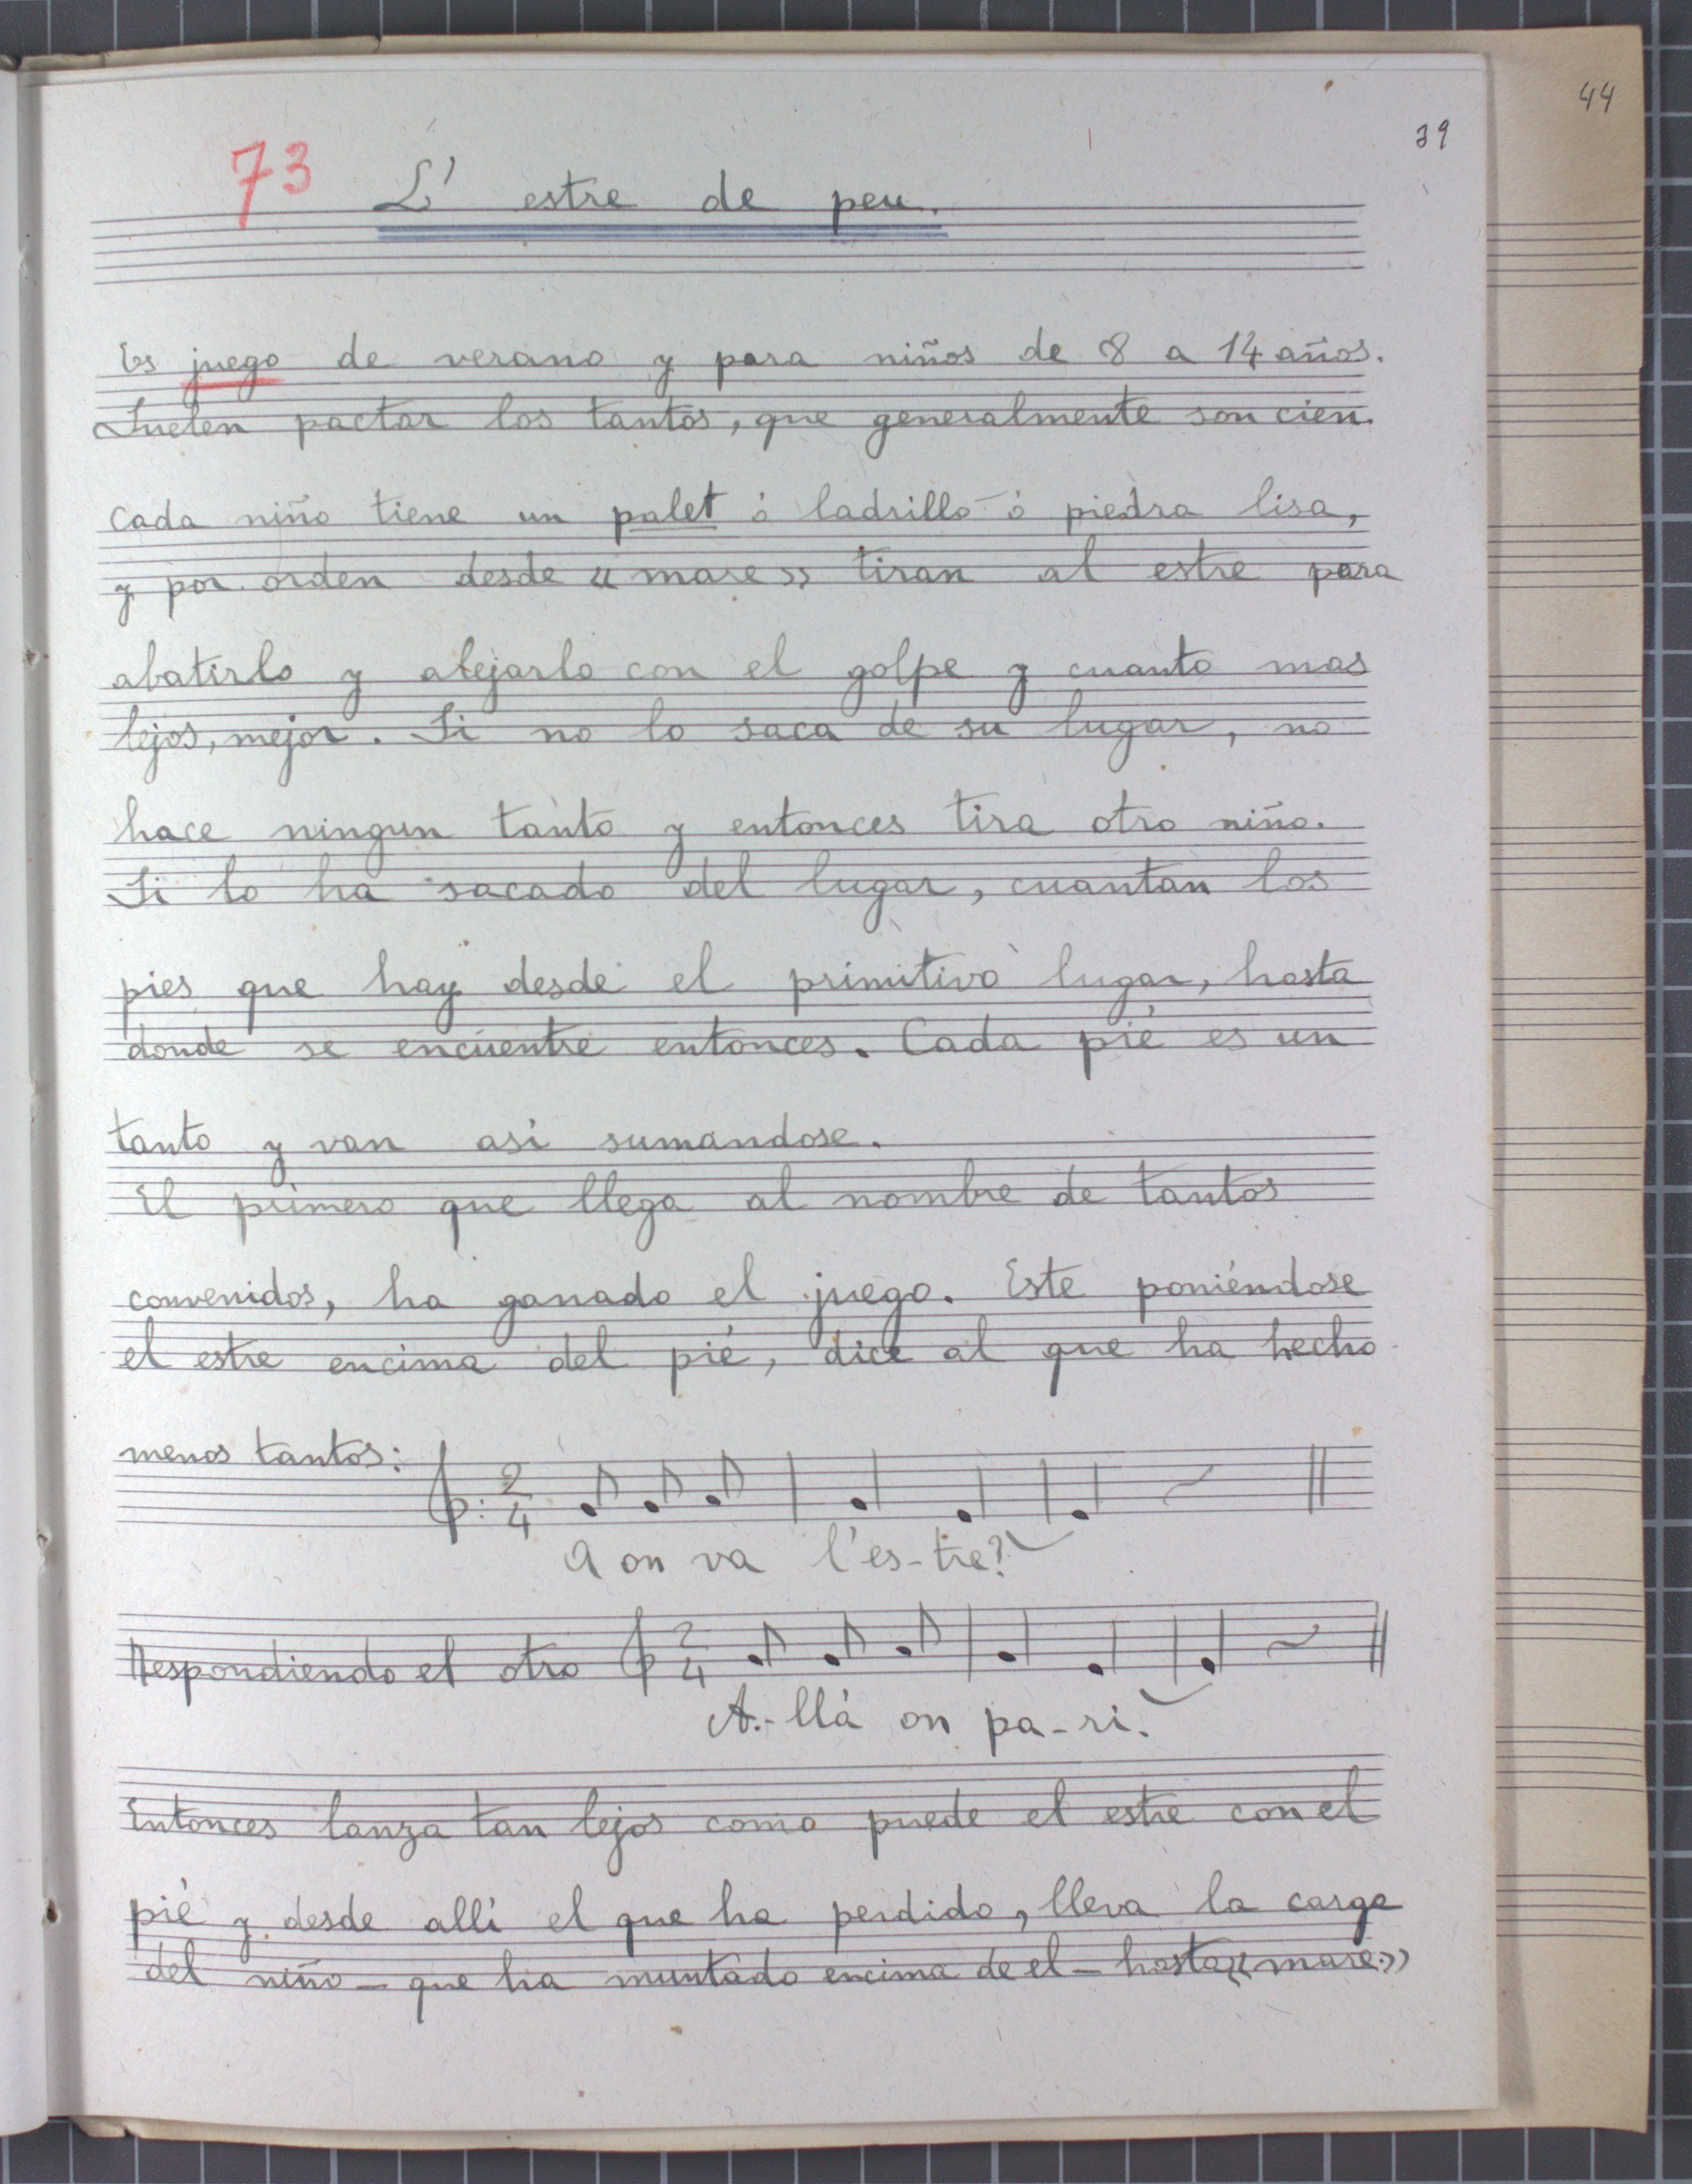 44
39
73 L' estre de peu.
Es juego de verano y para niños de 8 a 14 años.
Suelen pactar los tantos, que generalmente son cien.
Cada niño tiene un palet ó ladrillo ó piedra lisa,
y por orden desde «mare» tiran al estre para
abatirlo y alejarlo con el golpe y cuanto mas
lejos, mejor. Si no lo saca de su lugar, no
hace ningun tanto y entonces tira otro niño.
Si lo ha sacado del lugar, cuantan los
pies que hay desde el primitivo lugar, hasta
donde se encuentre entonces. Cada pié es un
tanto y van asi sumandose.
El primero que llega al nombre de tantos
convenidos, ha ganado el juego. Este poniéndose
el estre encima del pié, dice al que ha hecho
menos tantos: 2/4
A on va l'es-tre?
Respondiendo el otro 2/4
A-llá on pa-ri.
Entonces lanza tan lejos como puede el estre con el
pié y desde allí el que ha perdido, lleva la carga
del niño - que ha muntado encima de el - hasta «mare.»